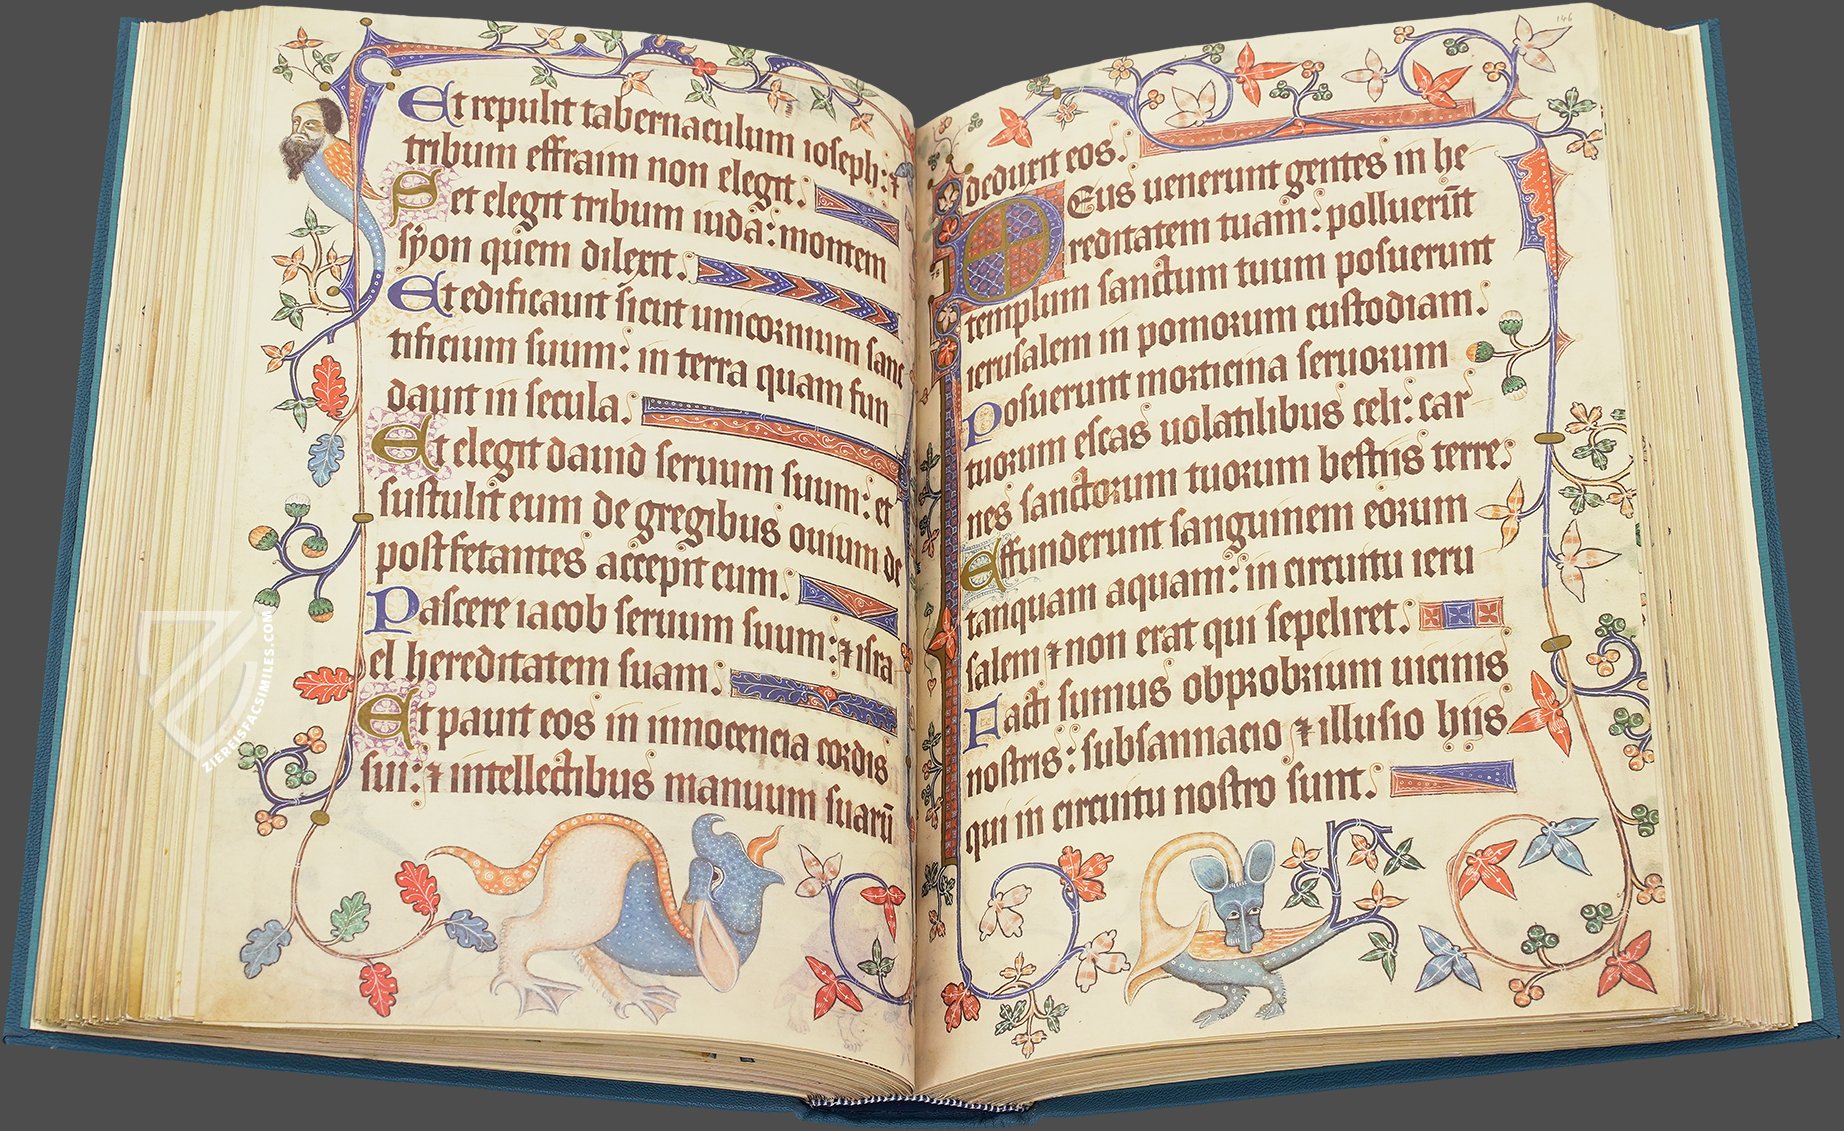 Et repulit tabernaculum ioseph: ⁊
tribum effraim non elegit.
Set elegit tribum iuda: montem
syon quem dilexit.
Et edificauit sicut unicornium sanc
tificium suum: in terra quam fun
dauit in secula.
Et elegit dauid seruum suum: et
sustulit eum de gregibus ouium de
post fetantes accepit eum.
Pascere iacob seruum suum: ⁊ isra
el hereditatem suam.
Et pauit eos in innocencia cordis
sui: ⁊ intellectibus manuum suarū
146
dedurit eos.
Deus uenerunt gentes in he
reditatem tuam: polluerūt
templum sanctum tuum posuerunt
ierusalem in pomorum custodiam.
Posuerunt morticina seruorum
tuorum escas uolatilibus celi: car
nes sanctorum tuorum bestiis terre.
Effunderunt sanguinem eorum
tanquam aquam: in circuitu ieru
salem ⁊ non erat qui sepeliret.
Facti sumus obprobrium uicinis
nostris: subsannacio ⁊ illusio hiis
qui in circuitu nostro sunt.
ZIEREISFACSIMILES.COM